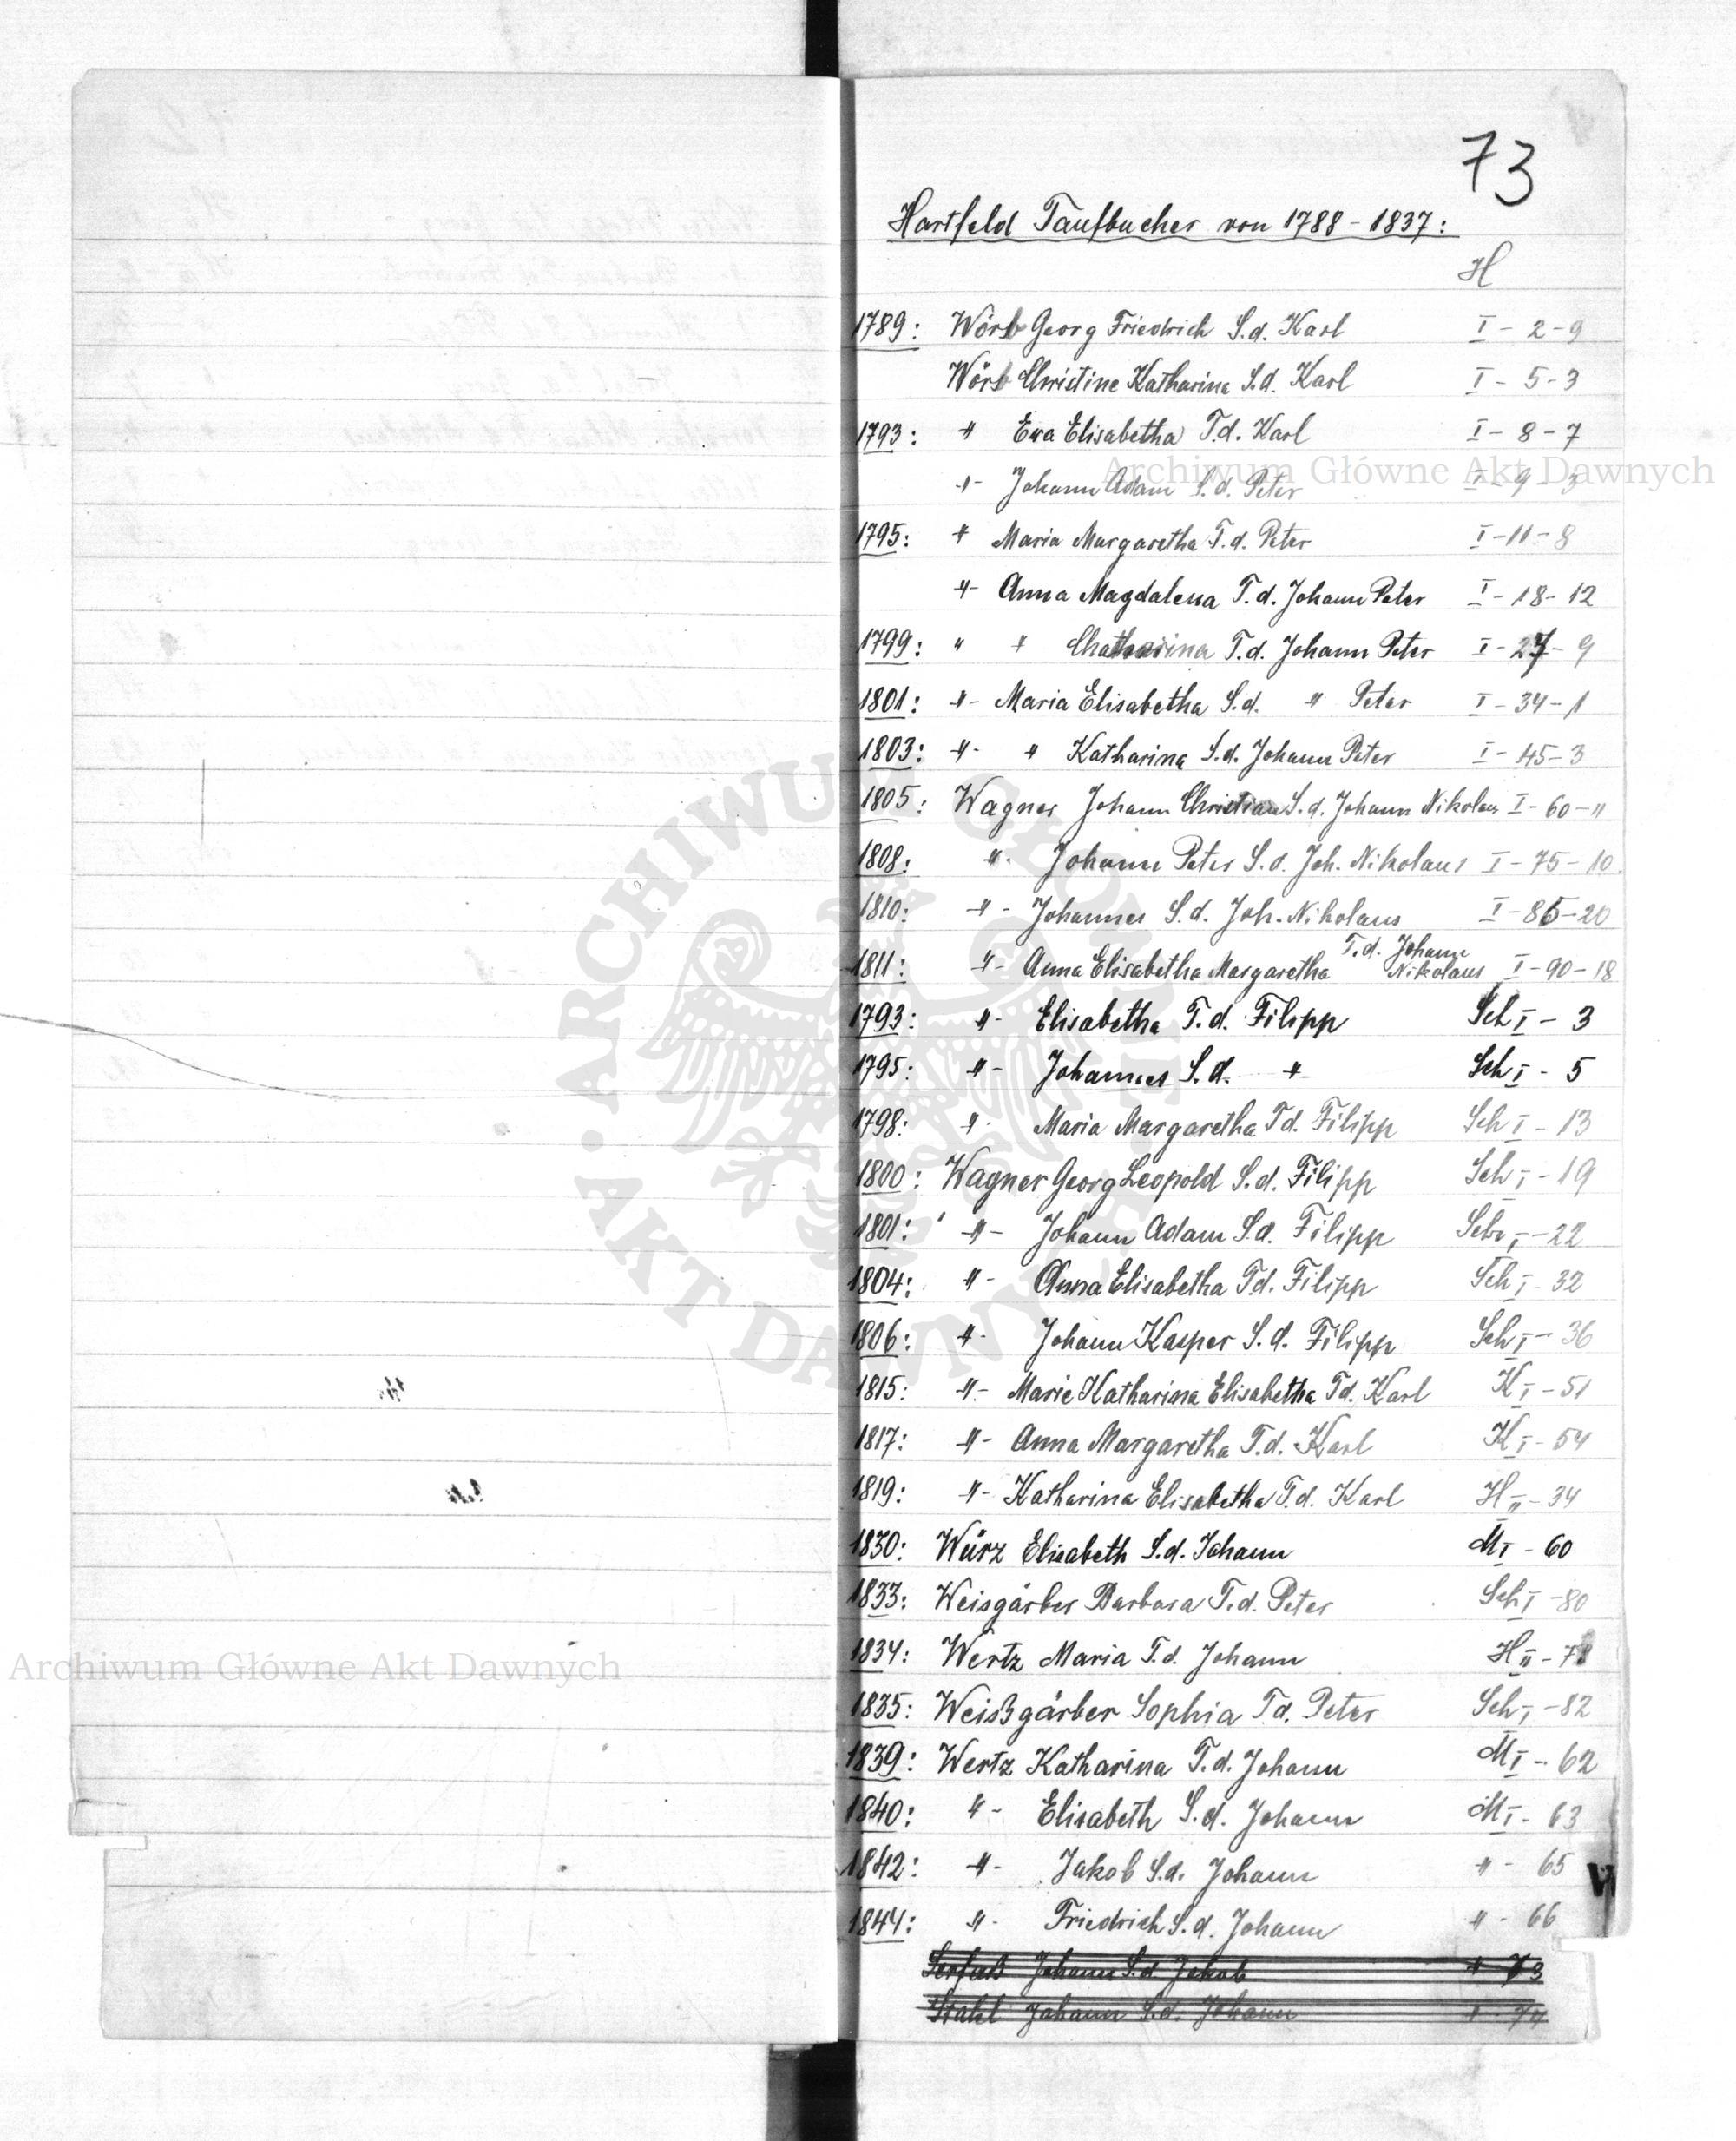 73
Hartfeld Taufbucher von 1788-1837:
H
1789: Wörb Georg Friedrich S.d. Karl I-2-9
Wörb Christine Katharina S.d. Karl I-5-3
1793: " Eva Elisabetha T.d. Karl I-8-7
-"- Johann Adam S.d. Peter I-9-3
1795: " Maria Margaretha T.d. Peter I-11-8
-"- Anna Magdalena T.d. Johann Peter I-18-12
1799: " " Chatharina T.d. Johann Peter I-27-9
1801: -"- Maria Elisabetha S.d. " Peter I-34-1
1803: -"- " Katharina S.d. Johann Peter I-45-3
1805: Wagner Johann Christian S.d. Johann Nikolaus I-60-11
1808: -"- Johann Peter S.d. Joh. Nikolaus I-75-10
1810: -"- Johannes S.d. Joh. Nikolaus I-86-20
1811: -"- Anna Elisabetha Margaretha T.d. Johann Nikolaus I-90-18
1793: -"- Elisabetha T.d. Filipp Sch I-3
1795: -"- Johannes S.d. -"- Sch I-5
1798: -"- Maria Margaretha T.d. Filipp Sch I-13
1800: Wagner Georg Leopold S.d. Filipp Sch I-19
1801: -"- Johann Adam S.d. Filipp Sch I-22
1804: -"- Anna Elisabetha T.d. Filipp Sch I-32
1806: -"- Johann Kasper S.d. Filipp Sch I-36
1815: -"- Marie Katharina Elisabetha T.d. Karl K I-51
1817: -"- Anna Margaretha T.d. Karl K I-54
1819: -"- Katharina Elisabetha T.d. Karl H II-34
1830: Würz Elisabeth S.d. Johann M I-60
1833: Weisgärber Barbara T.d. Peter Sch I-80
1834: Wertz Maria T.d. Johann H II-78
1835: Weißgärber Sophia T.d. Peter Sch I-82
1839: Wertz Katharina T.d. Johann M I-62
1840: -"- Elisabeth S.d. Johann M I-63
1842: -"- Jakob S.d. Johann -"- 65
1844: -"- Friedrich S.d. Johann -"- 66
Johann S.d. Jakob " 73
Stahl Johann S.d. Johann " 74
Archiwum Główne Akt Dawnych
Archiwum Główne Akt Dawnych
ARCHIWUM GŁÓWNE AKT DAWNYCH